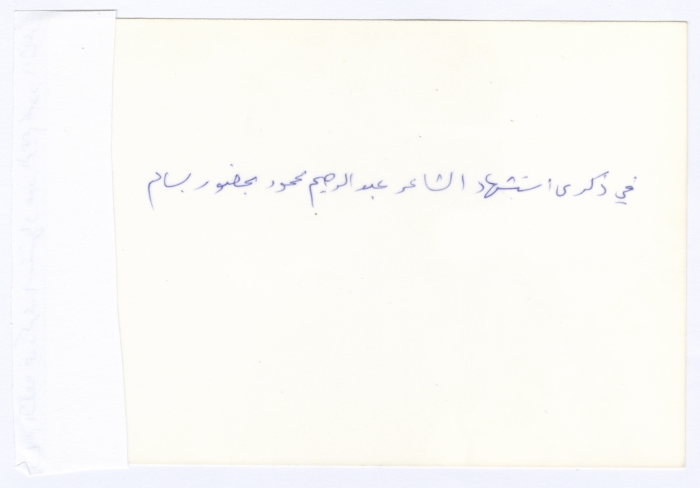 في ذكرى استشهاد الشاعر عبد الرحيم محمود بحضور بسام